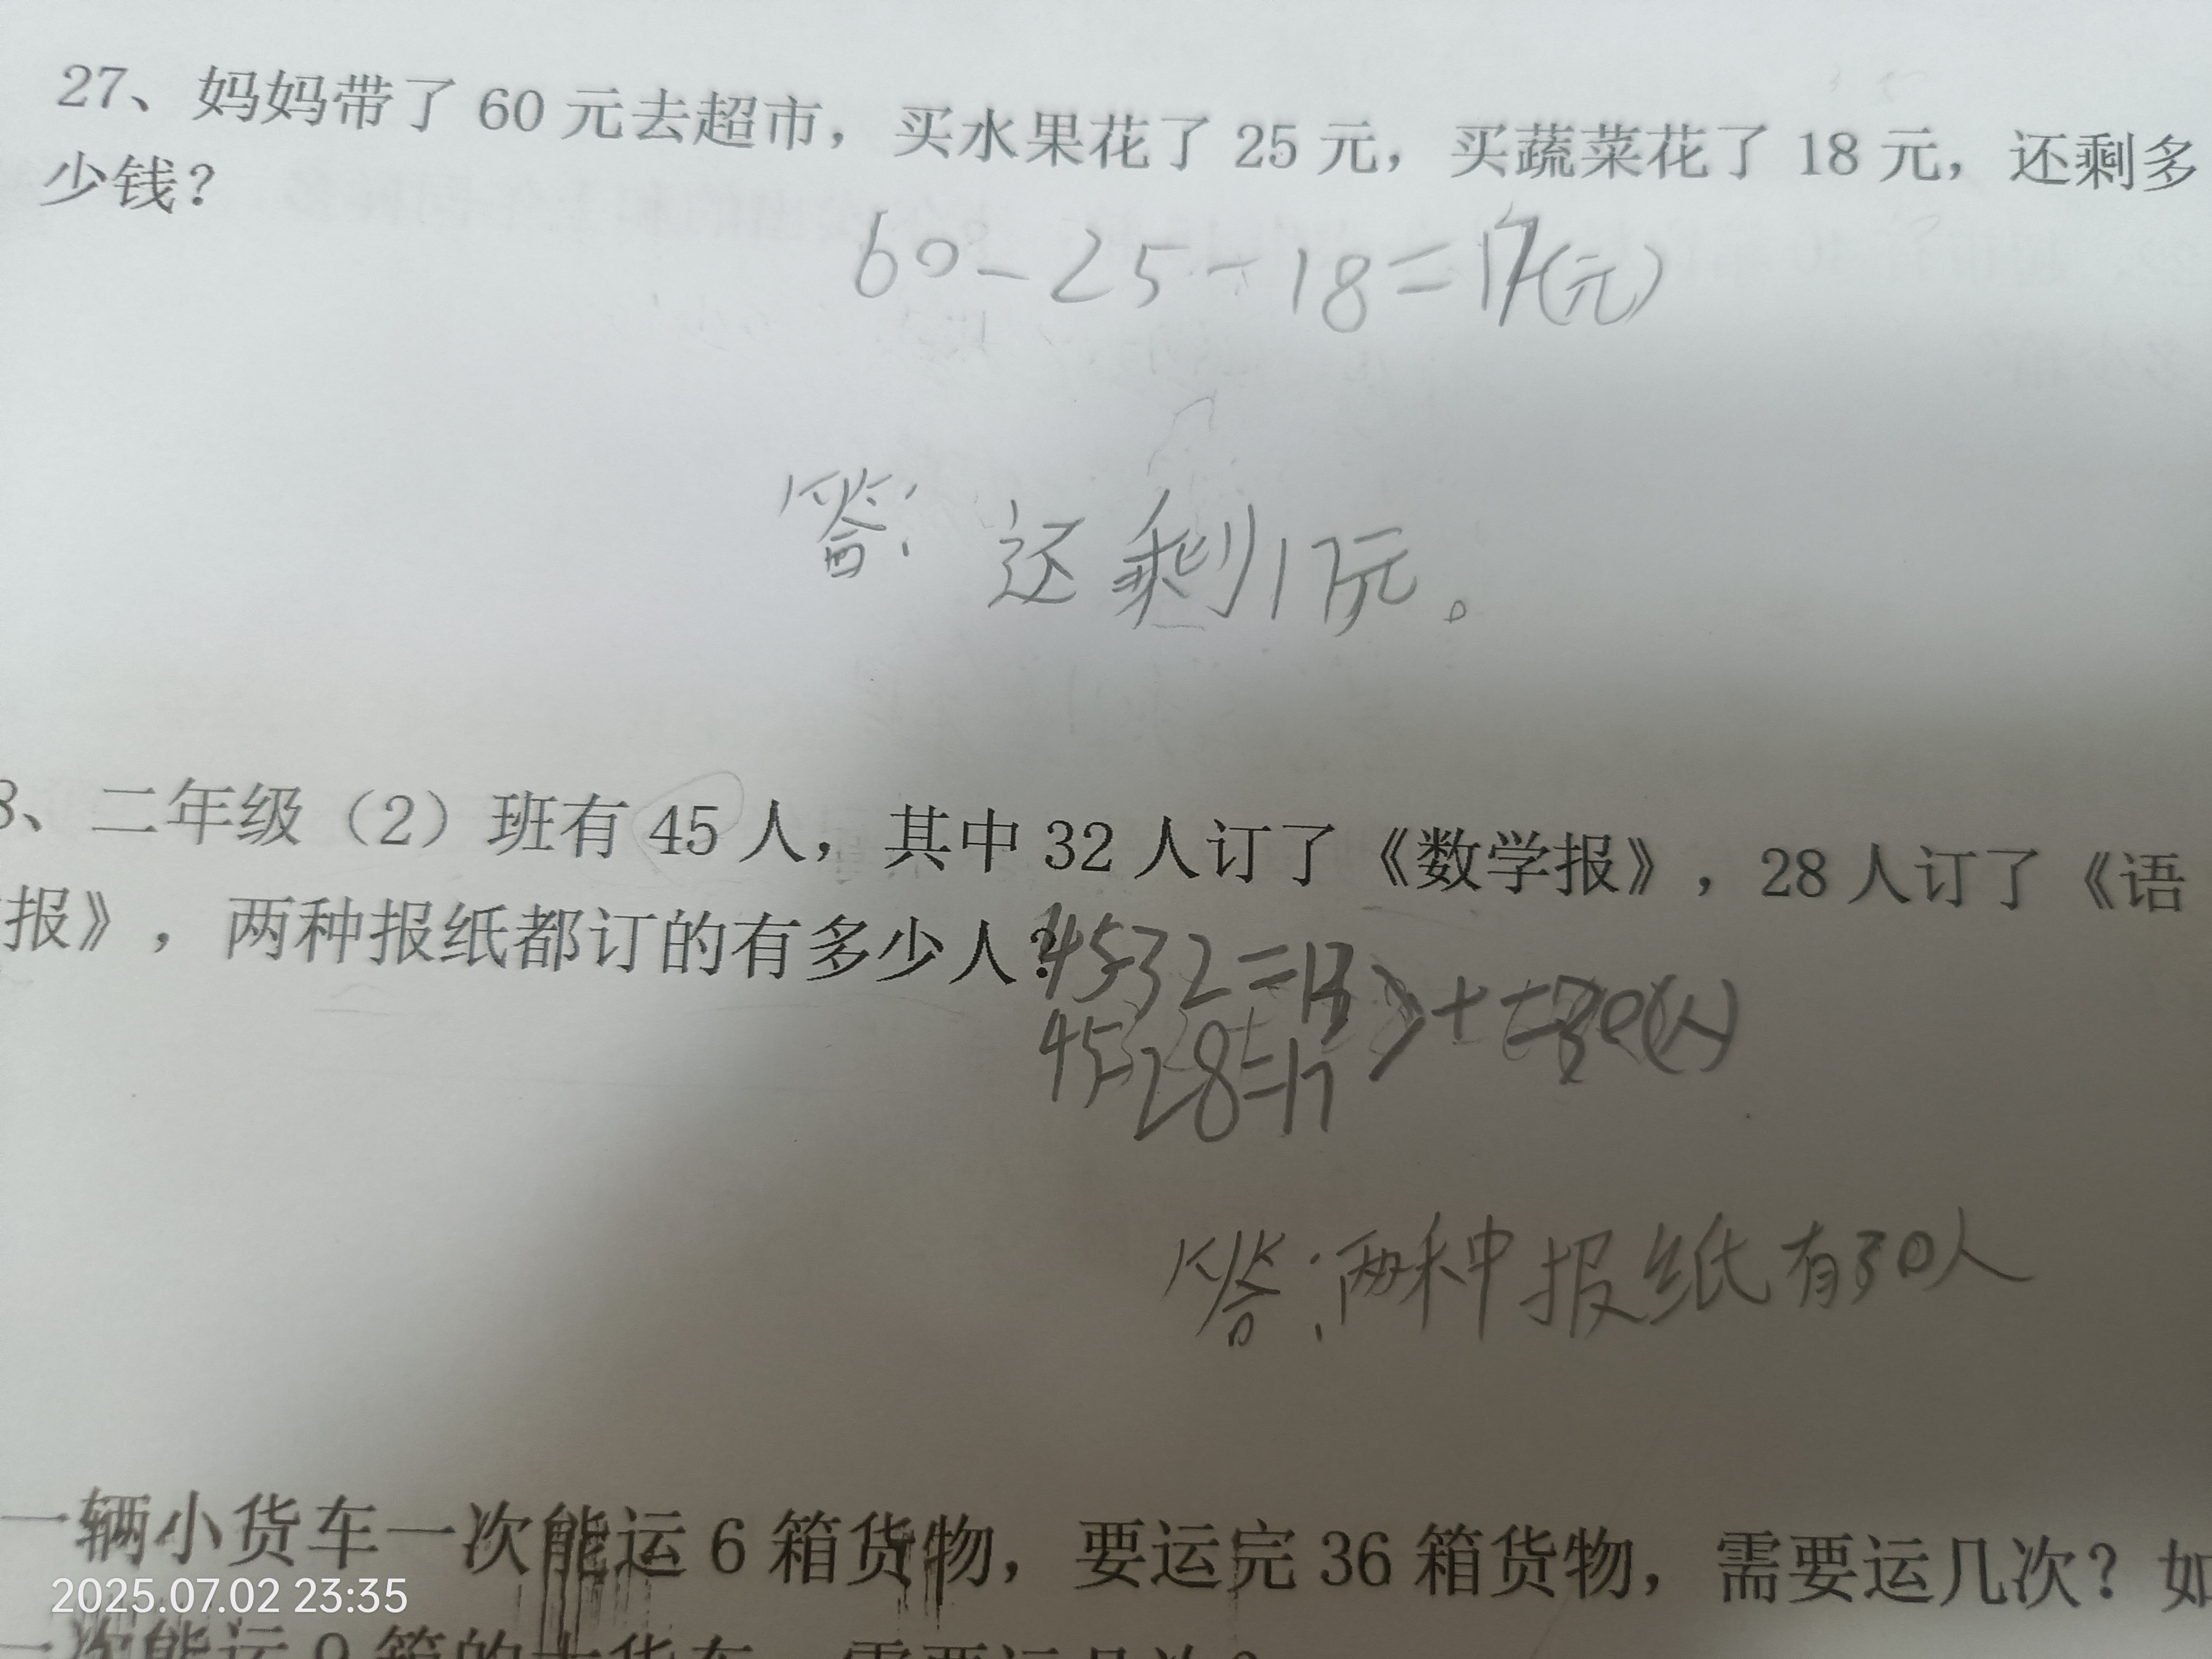 27、妈妈带了 60 元去超市，买水果花了 25 元，买蔬菜花了 18 元，还剩多
少钱？
60-25-18=17(元)
答：还剩17元。
8、二年级（2）班有 45 人，其中 32 人订了《数学报》，28 人订了《语
报》，两种报纸都订的有多少人？
45-32=13
45-28=17
+=30(人)
答：两种报纸有30人
一辆小货车一次能运 6 箱货物，要运完 36 箱货物，需要运几次？如
一次能运 9 箱的大货车，需要运几次？
2025.07.02 23:35